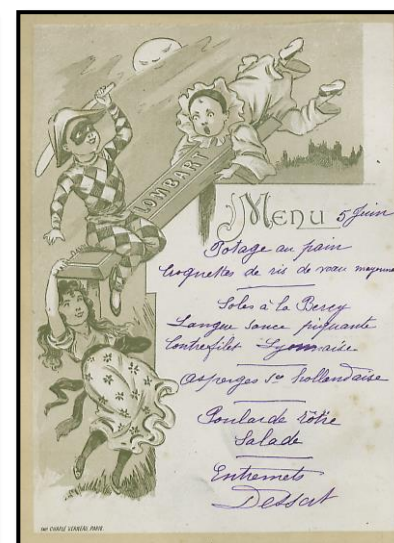 LOMBART
MENU 5 Juin
Potage au pain
Croquettes de ris de veau
Soles à la Bercy
Langue sauce piquante
Contrefilet Lyonnaise
Asperges Sce hollandaise
Poularde rôtie
Salade
Entremets
Dessert